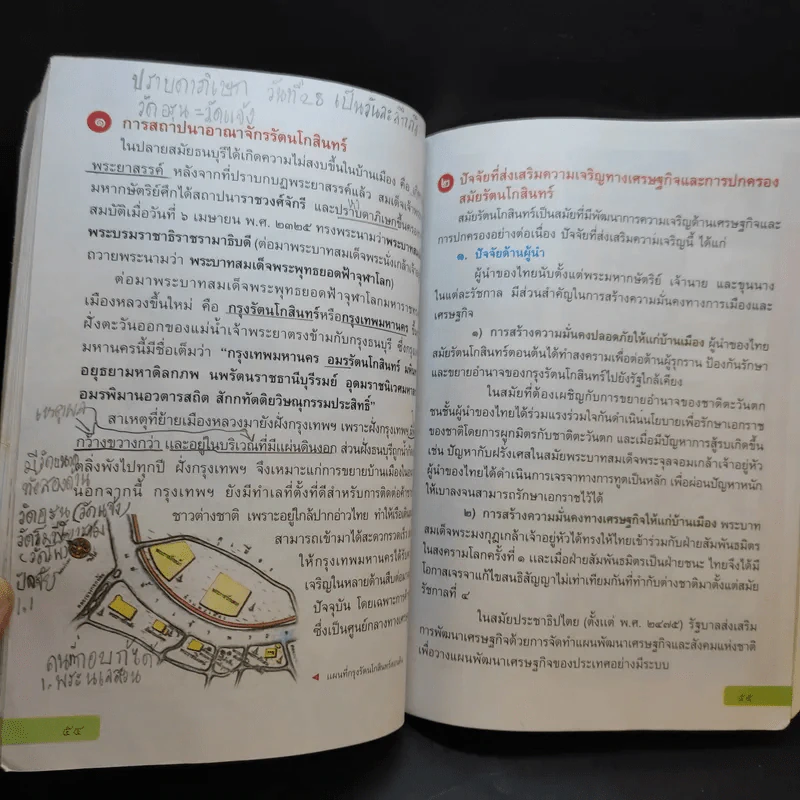 ปราบดาภิเษก วันที่ 28 เป็นวันระลึกถึง
วัดอรุณ = วัดแจ้ง
๑ การสถาปนาอาณาจักรรัตนโกสินทร์
ในปลายสมัยธนบุรีได้เกิดความไม่สงบขึ้นในบ้านเมือง คือ
พระยาสรรค์ หลังจากที่ปราบกบฏพระยาสรรค์แล้ว สมเด็จเจ้าพระยา
มหากษัตริย์ศึกได้สถาปนาราชวงศ์จักรี และปราบดาภิเษกขึ้นครอง
สมบัติเมื่อวันที่ ๖ เมษายน พ.ศ. ๒๓๒๕ ทรงพระนามว่าพระบาทสมเด็จ
พระบรมราชาธิราชรามาธิบดี (ต่อมาพระบาทสมเด็จพระนั่งเกล้าเจ้าอยู่หัว
ถวายพระนามว่า พระบาทสมเด็จพระพุทธยอดฟ้าจุฬาโลก)
ต่อมาพระบาทสมเด็จพระพุทธยอดฟ้าจุฬาโลกมหาราช
เมืองหลวงขึ้นใหม่ คือ กรุงรัตนโกสินทร์หรือกรุงเทพมหานคร
ฝั่งตะวันออกของแม่น้ำเจ้าพระยาตรงข้ามกับกรุงธนบุรี ซึ่งกรุงเทพ
มหานครนี้มีชื่อเต็มว่า “กรุงเทพมหานคร อมรรัตนโกสินทร์
อยุธยามหาดิลกภพ นพรัตนราชธานีบุรีรมย์ อุดมราชนิเวศมหา
อมรพิมานอวตารสถิต สักกทัตติยวิษณุกรรมประสิทธิ์”
สาเหตุที่ย้ายเมืองหลวงมายังฝั่งกรุงเทพฯ เพราะฝั่งกรุงเทพฯ
กว้างขวางกว่า และอยู่ในบริเวณที่มีแผ่นดินงอก ส่วนฝั่งธนบุรีถูกน้ำ
ตลิ่งพังไปทุกปี ฝั่งกรุงเทพฯ จึงเหมาะแก่การขยายบ้านเมืองใน
นอกจากนี้ กรุงเทพฯ ยังมีทำเลที่ตั้งที่ดีสำหรับการติดต่อค้าขาย
ชาวต่างชาติ เพราะอยู่ใกล้ปากอ่าวไทย ทำให้เรือ
สามารถเข้ามาได้สะดวกรวดเร็ว
ให้กรุงเทพมหานครได้รับ
เจริญในหลายด้านสืบต่อมา
ปัจจุบัน โดยเฉพาะการค้า
ซึ่งเป็นศูนย์กลางทางเศรษฐกิจ
วัดอรุณ (วัดแจ้ง)
ปัจจัย
1.1
1. พระนเรศวร
แผนที่กรุงรัตนโกสินทร์ตอนต้น
๕๔
๒ ปัจจัยที่ส่งเสริมความเจริญทางเศรษฐกิจและการปกครอง
สมัยรัตนโกสินทร์
สมัยรัตนโกสินทร์เป็นสมัยที่มีพัฒนาการความเจริญด้านเศรษฐกิจและ
การปกครองอย่างต่อเนื่อง ปัจจัยที่ส่งเสริมความเจริญนี้ ได้แก่
๑. ปัจจัยด้านผู้นำ
ผู้นำของไทยนับตั้งแต่พระมหากษัตริย์ เจ้านาย และขุนนาง
ในแต่ละรัชกาล มีส่วนสำคัญในการสร้างความมั่นคงทางการเมืองและ
เศรษฐกิจ
๑) การสร้างความมั่นคงปลอดภัยให้แก่บ้านเมือง ผู้นำของไทย
สมัยรัตนโกสินทร์ตอนต้นได้ทำสงครามเพื่อต่อต้านผู้รุกราน ป้องกันรักษา
และขยายอำนาจของกรุงรัตนโกสินทร์ไปยังรัฐใกล้เคียง
ในสมัยที่ต้องเผชิญกับการขยายอำนาจของชาติตะวันตก
ชนชั้นผู้นำของไทยได้ร่วมแรงร่วมใจกันดำเนินนโยบายเพื่อรักษาเอกราช
ของชาติโดยการผูกมิตรกับชาติตะวันตก และเมื่อมีปัญหาการสู้รบเกิดขึ้น
เช่น ปัญหากับฝรั่งเศสในสมัยพระบาทสมเด็จพระจุลจอมเกล้าเจ้าอยู่หัว
ผู้นำของไทยได้ดำเนินการเจรจาทางการทูตเป็นหลัก เพื่อผ่อนปัญหาหนัก
ให้เบาลงจนสามารถรักษาเอกราชไว้ได้
๒) การสร้างความมั่นคงทางเศรษฐกิจให้แก่บ้านเมือง พระบาท
สมเด็จพระมงกุฎเกล้าเจ้าอยู่หัวได้ทรงให้ไทยเข้าร่วมกับฝ่ายสัมพันธมิตร
ในสงครามโลกครั้งที่ ๑ และเมื่อฝ่ายสัมพันธมิตรเป็นฝ่ายชนะ ไทยจึงได้มี
โอกาสเจรจาแก้ไขสนธิสัญญาไม่เท่าเทียมกันที่ทำกับต่างชาติมาตั้งแต่สมัย
รัชกาลที่ ๔
ในสมัยประชาธิปไตย (ตั้งแต่ พ.ศ. ๒๔๗๕) รัฐบาลส่งเสริม
การพัฒนาเศรษฐกิจด้วยการจัดทำแผนพัฒนาเศรษฐกิจและสังคมแห่งชาติ
เพื่อวางแผนพัฒนาเศรษฐกิจของประเทศอย่างมีระบบ
๕๕